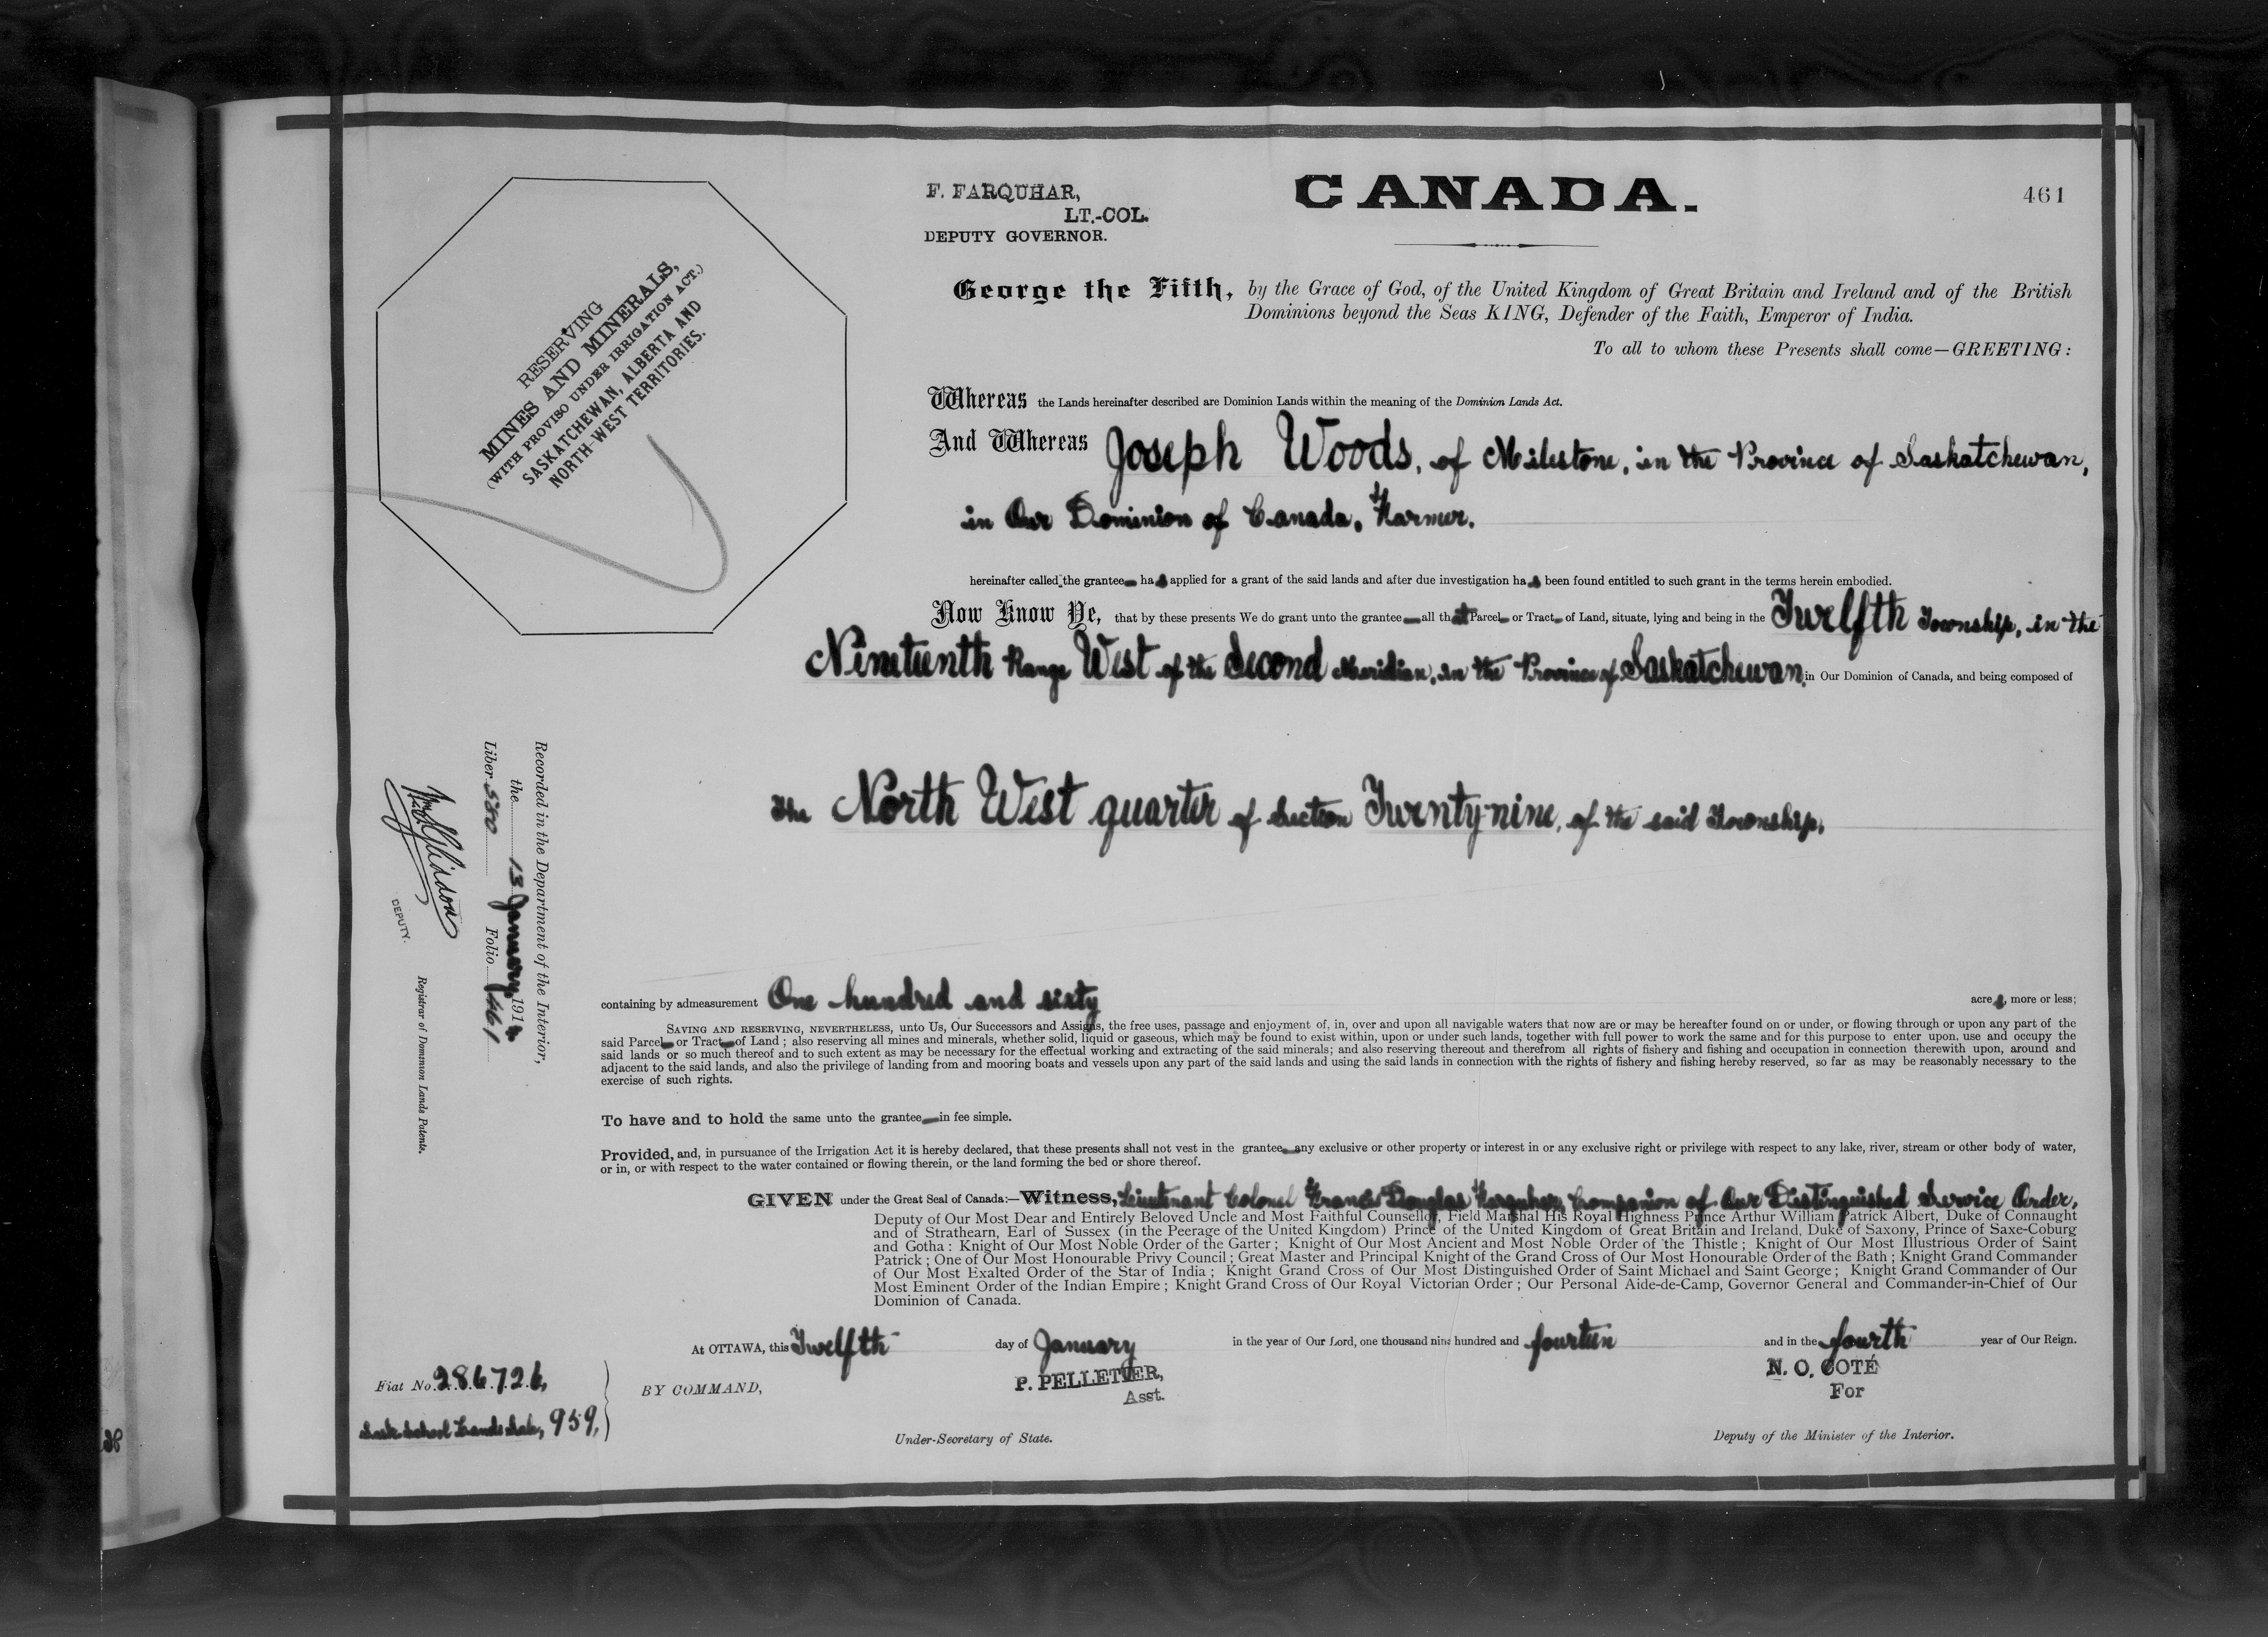 F. FARQUHAR,
LT.-COL.
DEPUTY GOVERNOR.
CANADA.
461
RESERVING
MINES AND MINERALS,
(WITH PROVISO UNDER IRRIGATION ACT.)
SASKATCHEWAN, ALBERTA AND
NORTH-WEST TERRITORIES.
George the Fifth, by the Grace of God, of the United Kingdom of Great Britain and Ireland and of the British
Dominions beyond the Seas KING, Defender of the Faith, Emperor of India.
To all to whom these Presents shall come—GREETING:
Whereas the Lands hereinafter described are Dominion Lands within the meaning of the Dominion Lands Act.
And Whereas Joseph Woods, of Milestone, in the Province of Saskatchewan,
in Our Dominion of Canada, Farmer.
hereinafter called the grantee has applied for a grant of the said lands and after due investigation has been found entitled to such grant in the terms herein embodied.
Now Know Ye, that by these presents We do grant unto the grantee all that Parcel or Tract of Land, situate, lying and being in the Twelfth Township, in the
Nineteenth Range West of the Second Meridian, in the Province of Saskatchewan, in Our Dominion of Canada, and being composed of
the North West quarter of Section Twenty-nine, of the said Township,
Recorded in the Department of the Interior,
the 13 January 1914
Liber 580 Folio 461
DEPUTY.
Registrar of Dominion Lands Patents.
containing by admeasurement One hundred and sixty acres, more or less;
SAVING AND RESERVING, NEVERTHELESS, unto Us, Our Successors and Assigns, the free uses, passage and enjoyment of, in, over and upon all navigable waters that now are or may be hereafter found on or under, or flowing through or upon any part of the
said Parcel or Tract of Land ; also reserving all mines and minerals, whether solid, liquid or gaseous, which may be found to exist within, upon or under such lands, together with full power to work the same and for this purpose to enter upon, use and occupy the
said lands or so much thereof and to such extent as may be necessary for the effectual working and extracting of the said minerals; and also reserving thereout and therefrom all rights of fishery and fishing and occupation in connection therewith upon, around and
adjacent to the said lands, and also the privilege of landing from and mooring boats and vessels upon any part of the said lands and using the said lands in connection with the rights of fishery and fishing hereby reserved, so far as may be reasonably necessary to the
exercise of such rights.
To have and to hold the same unto the grantee in fee simple.
Provided, and, in pursuance of the Irrigation Act it is hereby declared, that these presents shall not vest in the grantee any exclusive or other property or interest in or any exclusive right or privilege with respect to any lake, river, stream or other body of water,
or in, or with respect to the water contained or flowing therein, or the land forming the bed or shore thereof.
GIVEN under the Great Seal of Canada:—Witness, Lieutenant Colonel Francis Douglas Farquhar, Companion of Our Distinguished Service Order,
Deputy of Our Most Dear and Entirely Beloved Uncle and Most Faithful Counsellor, Field Marshal His Royal Highness Prince Arthur William Patrick Albert, Duke of Connaught
and of Strathearn, Earl of Sussex (in the Peerage of the United Kingdom) Prince of the United Kingdom of Great Britain and Ireland, Duke of Saxony, Prince of Saxe-Coburg
and Gotha : Knight of Our Most Noble Order of the Garter ; Knight of Our Most Ancient and Most Noble Order of the Thistle ; Knight of Our Most Illustrious Order of Saint
Patrick ; One of Our Most Honourable Privy Council ; Great Master and Principal Knight of the Grand Cross of Our Most Honourable Order of the Bath ; Knight Grand Commander
of Our Most Exalted Order of the Star of India ; Knight Grand Cross of Our Most Distinguished Order of Saint Michael and Saint George ; Knight Grand Commander of Our
Most Eminent Order of the Indian Empire ; Knight Grand Cross of Our Royal Victorian Order ; Our Personal Aide-de-Camp, Governor General and Commander-in-Chief of Our
Dominion of Canada.
At OTTAWA, this Twelfth day of January in the year of Our Lord, one thousand nine hundred and fourteen and in the fourth year of Our Reign.
Fiat No. 286726,
Sask. School Lands Sale, 959,
BY COMMAND,
P. PELLETIER,
Asst.
Under-Secretary of State.
N. O. COTÉ
For
Deputy of the Minister of the Interior.